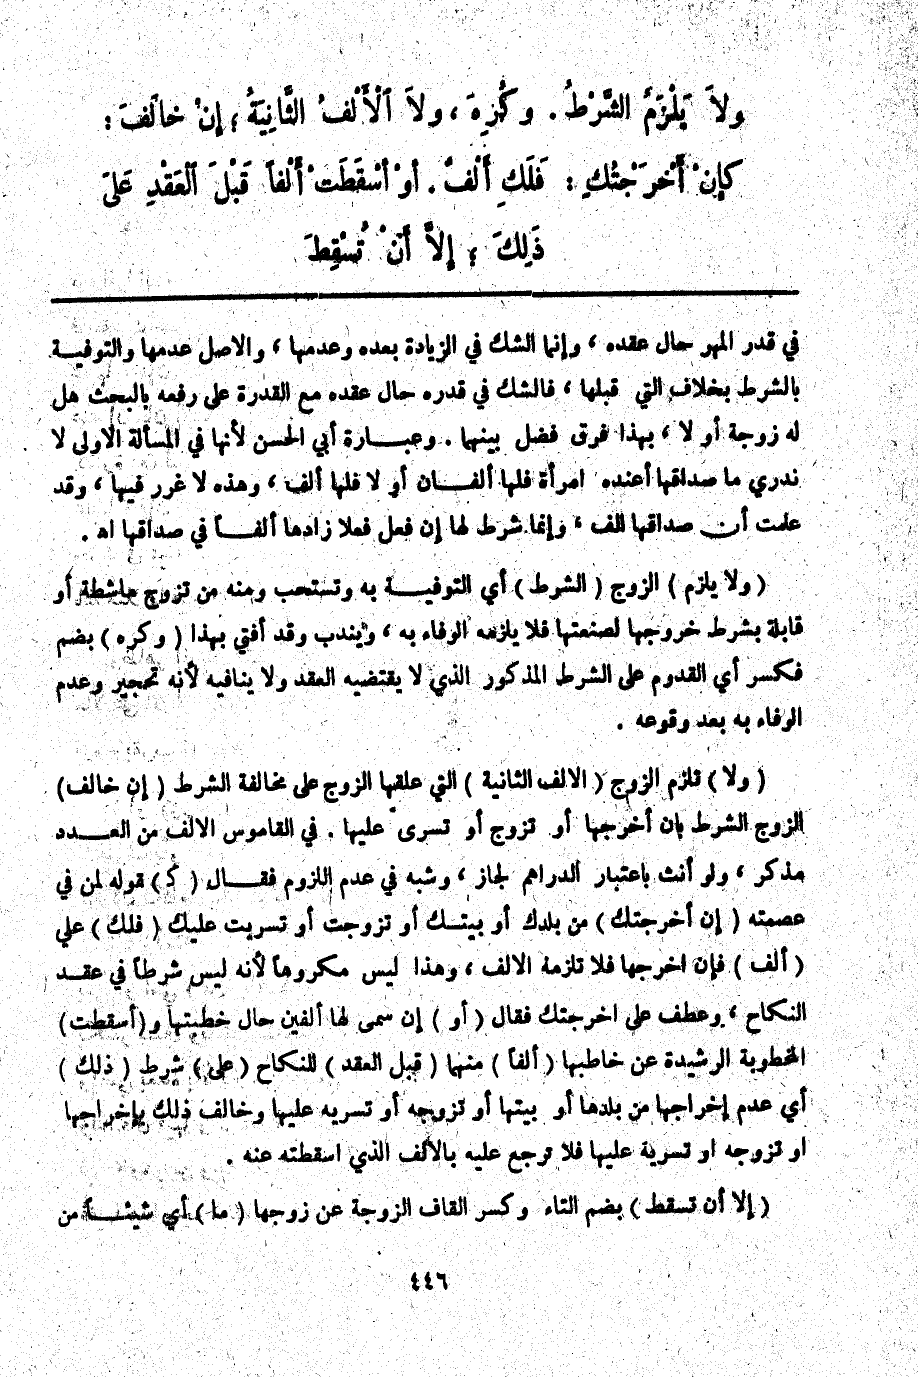 ولاَ يَلْزَمُ الشَّرْطُ . وكُرِهَ ، ولاَ ٱلْأَلْفُ الثَّانِيَةُ ؛ إِنْ خالَفَ :
كإِنْ أَخْرَجْتُكِ : فَلَكِ أَلْفٌ . أوْ أسْقَطَتْ أَلْفاً قَبْلَ ٱلعَقْدِ عَلىَ
ذَلِكَ ؛ إِلاَّ أَنْ تُسْقِطَ
في قدر المهر حال عقده ، وإنما الشك في الزيادة بعده وعدمها ، والاصل عدمها والتوفيــة
بالشرط بخلاف التي قبلها ، فالشك في قدره حال عقده مع القدرة على رفعه بالبحث هل
له زوجة أو لا ، بهذا فرق فضل بينهما . وعبــارة أبي الحسن لأنها في المسألة الاولى لا
ندري ما صداقها أعنده امرأة فلها ألفــان أو لا فلها ألف ، وهذه لا غرر فيها ، وقد
علمت أن صداقها الف ، وإنما شرط لها إن فعل فعلا زادها ألفــاً في صداقها اهـ .
( ولا يلزم ) الزوج ( الشرط ) أي التوفيــة به وتستحب ومنه من تزوج ماشطة أو
قابلة بشرط خروجها لصنعتها فلا يلزمه الوفاء به ، ويندب وقد أفتي بهذا ( وكره ) بضم
فكسر أي القدوم على الشرط المذكور الذي لا يقتضيه العقد ولا ينافيه لأنه تحجير وعدم
الوفاء به بعد وقوعه .
( ولا ) تلزم الزوج ( الالف الثانية ) التي علقها الزوج على مخالفة الشرط ( إن خالف)
الزوج الشرط بان أخرجها أو تزوج أو تسرى عليها . في القاموس الالف من العــدد
مذكر ، ولو أنث باعتبار الدراهم لجاز ، وشبه في عدم اللزوم فقــال ( كـ ) قوله لمن في
عصمته ( إن أخرجتك ) من بلدك أو بيتــك أو تزوجت أو تسريت عليك ( فلك ) علي
( ألف ) فإن اخرجها فلا تلزمه الالف ، وهذا ليس مكروهاً لأنه ليس شرطاً في عقــد
النكاح ، وعطف على اخرجتك فقال ( أو ) إن سمى لها ألفين حال خطبتها و(أسقطت)
المخطوبة الرشيدة عن خاطبها ( ألفاً ) منهما ( قبل العقد ) للنكاح ( على ) شرط ( ذلك )
أي عدم إخراجها من بلدها أو بيتها أو تزوجه أو تسريه عليها وخالف ذلك بإخراجها
او تزوجه او تسرية عليها فلا ترجع عليه بالألف الذي اسقطته عنه .
( إلا أن تسقط ) بضم التاء وكسر القاف الزوجة عن زوجها ( ما ) أي شيئــاً من
٤٤٦